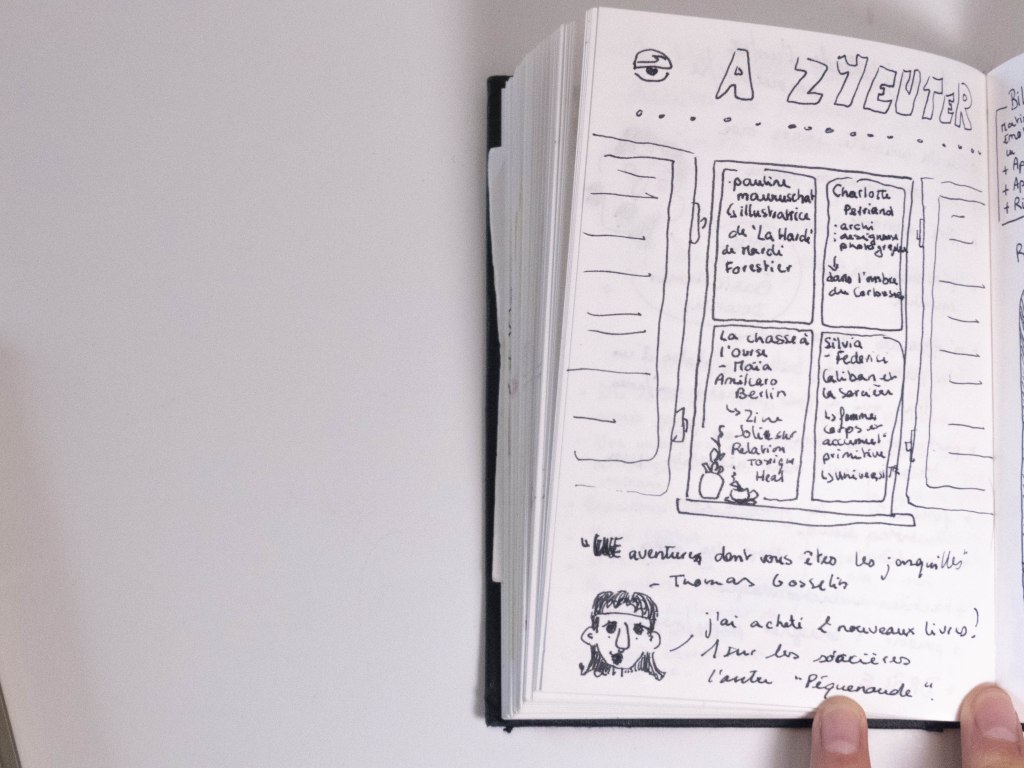 A ZYEUTER
pauline
mauruschat
↳ illustratrice
de 'La Hardi'
de Mardi
Forestier
Charlotte
Perriand
: archi
: designeuse
photographe
↓
dans l'ombre
du Corbusier
La chasse à
l'ourse
- Maïa
Amilcaro
Berlin
↳ Zine
sur
Relation
Toxique
Silvia
- Federici
Caliban et
la sorcière
↳ femmes
corps et
accumul°
primitive
↳ Universi
" aventures dont vous êtes les jonquilles"
- Thomas Gosselin
j'ai acheté 2 nouveaux livres!
1 sur les sorcières
l'autre "Péquenaude".
Bi
+ Ap
+ Ap
+ Ri
R